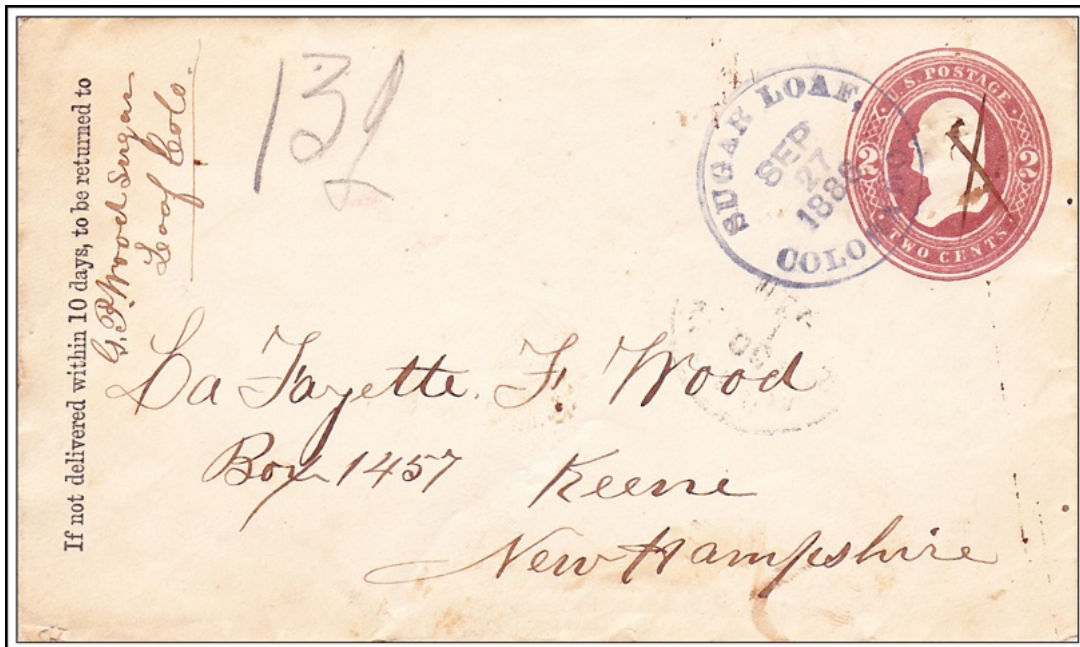 If not delivered within 10 days, to be returned to
G. P. Wood Sugar
Loaf Colo.
SUGAR LOAF,
SEP
27
COLORADO
U.S. POSTAGE
2 2
TWO CENTS
La Fayette. F. Wood
Box 1457 Keene
New Hampshire